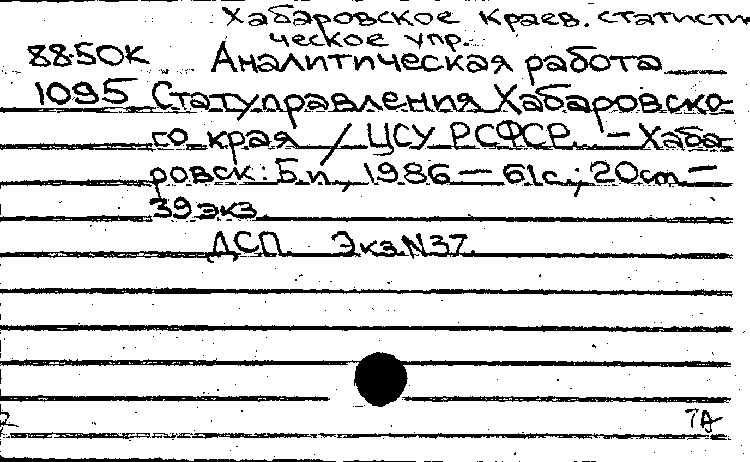 Хабаровское краев. статисти
ческое упр.
88-50К Аналитическая работа
1095 Статуправления Хабаровско-
го края / ЦСУ РСФСР. – Хаба-
ровск: Б.и., 1986 – 61с.; 20см –
39 экз.
ДСП. Экз.N37.
7А